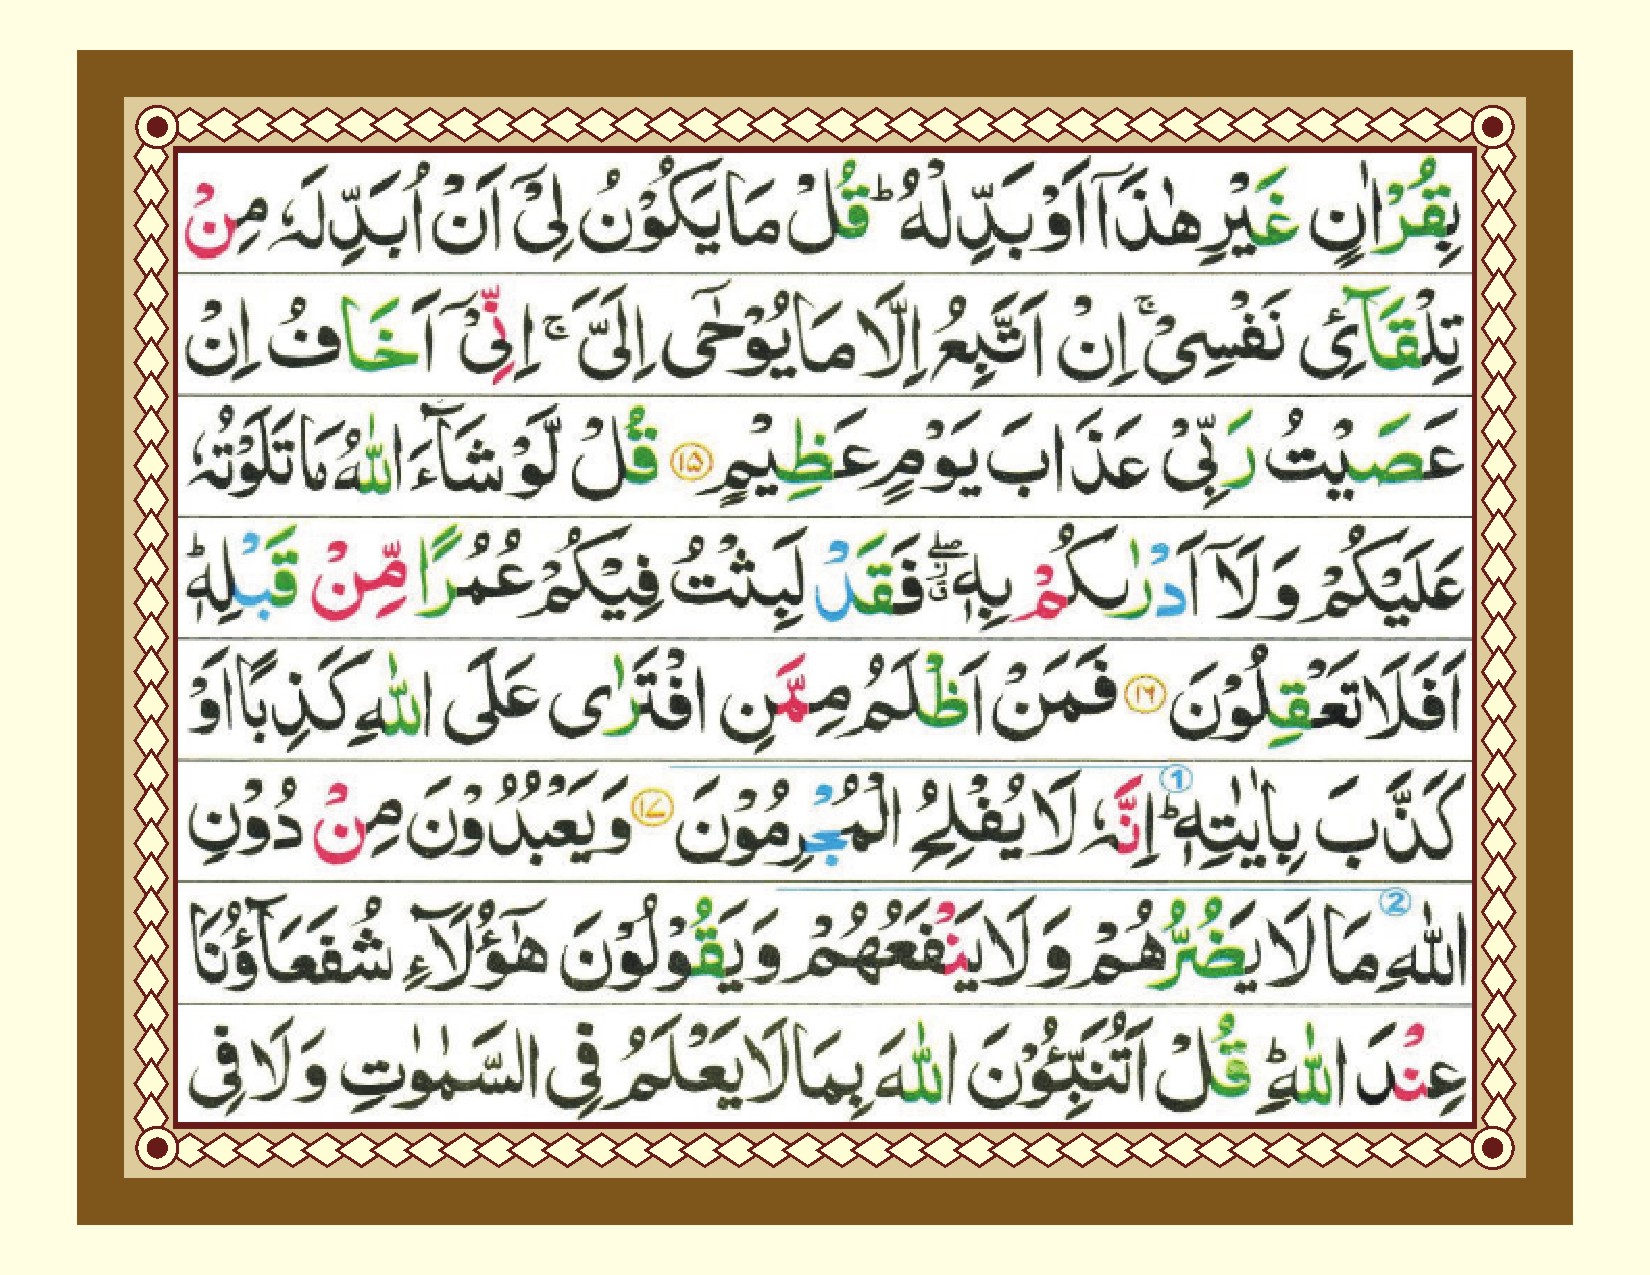 بِقُرْاٰنٍ غَيْرِ هٰذَآ اَوْ بَدِّلْهُ ؕ قُلْ مَا يَكُوْنُ لِيْٓ اَنْ اُبَدِّلَهٗ مِنْ
تِلْقَآئِ نَفْسِيْ ۚ اِنْ اَتَّبِعُ اِلَّا مَا يُوْحٰٓى اِلَيَّ ۚ اِنِّيْٓ اَخَافُ اِنْ
عَصَيْتُ رَبِّيْ عَذَابَ يَوْمٍ عَظِيْمٍ ۱۵ قُلْ لَّوْ شَآءَ اللّٰهُ مَا تَلَوْتُهٗ
عَلَيْكُمْ وَلَآ اَدْرٰىكُمْ بِهٖ ۖ فَقَدْ لَبِثْتُ فِيْكُمْ عُمُرًا مِّنْ قَبْلِهٖ ؕ
اَفَلَا تَعْقِلُوْنَ ۱۶ فَمَنْ اَظْلَمُ مِمَّنِ افْتَرٰى عَلَى اللّٰهِ كَذِبًا اَوْ
كَذَّبَ بِاٰيٰتِهٖ ؕ 1 اِنَّهٗ لَا يُفْلِحُ الْمُجْرِمُوْنَ ۱۷ وَيَعْبُدُوْنَ مِنْ دُوْنِ
اللّٰهِ 2 مَا لَا يَضُرُّهُمْ وَلَا يَنْفَعُهُمْ وَيَقُوْلُوْنَ هٰٓؤُلَآءِ شُفَعَآؤُنَا
عِنْدَ اللّٰهِ ؕ قُلْ اَتُنَبِّـُٔوْنَ اللّٰهَ بِمَا لَا يَعْلَمُ فِي السَّمٰوٰتِ وَلَا فِي